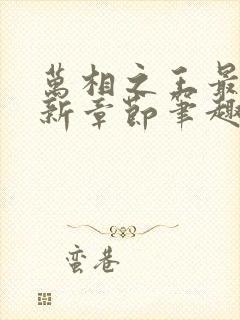 萬相之王最
新章節筆趣
蛮巷